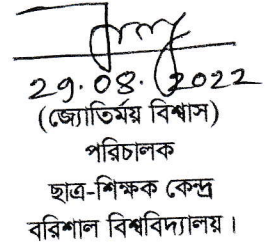 29.08.2022
(জ্যোতির্ময় বিশ্বাস)
পরিচালক
ছাত্র-শিক্ষক কেন্দ্র
বরিশাল বিশ্ববিদ্যালয়।